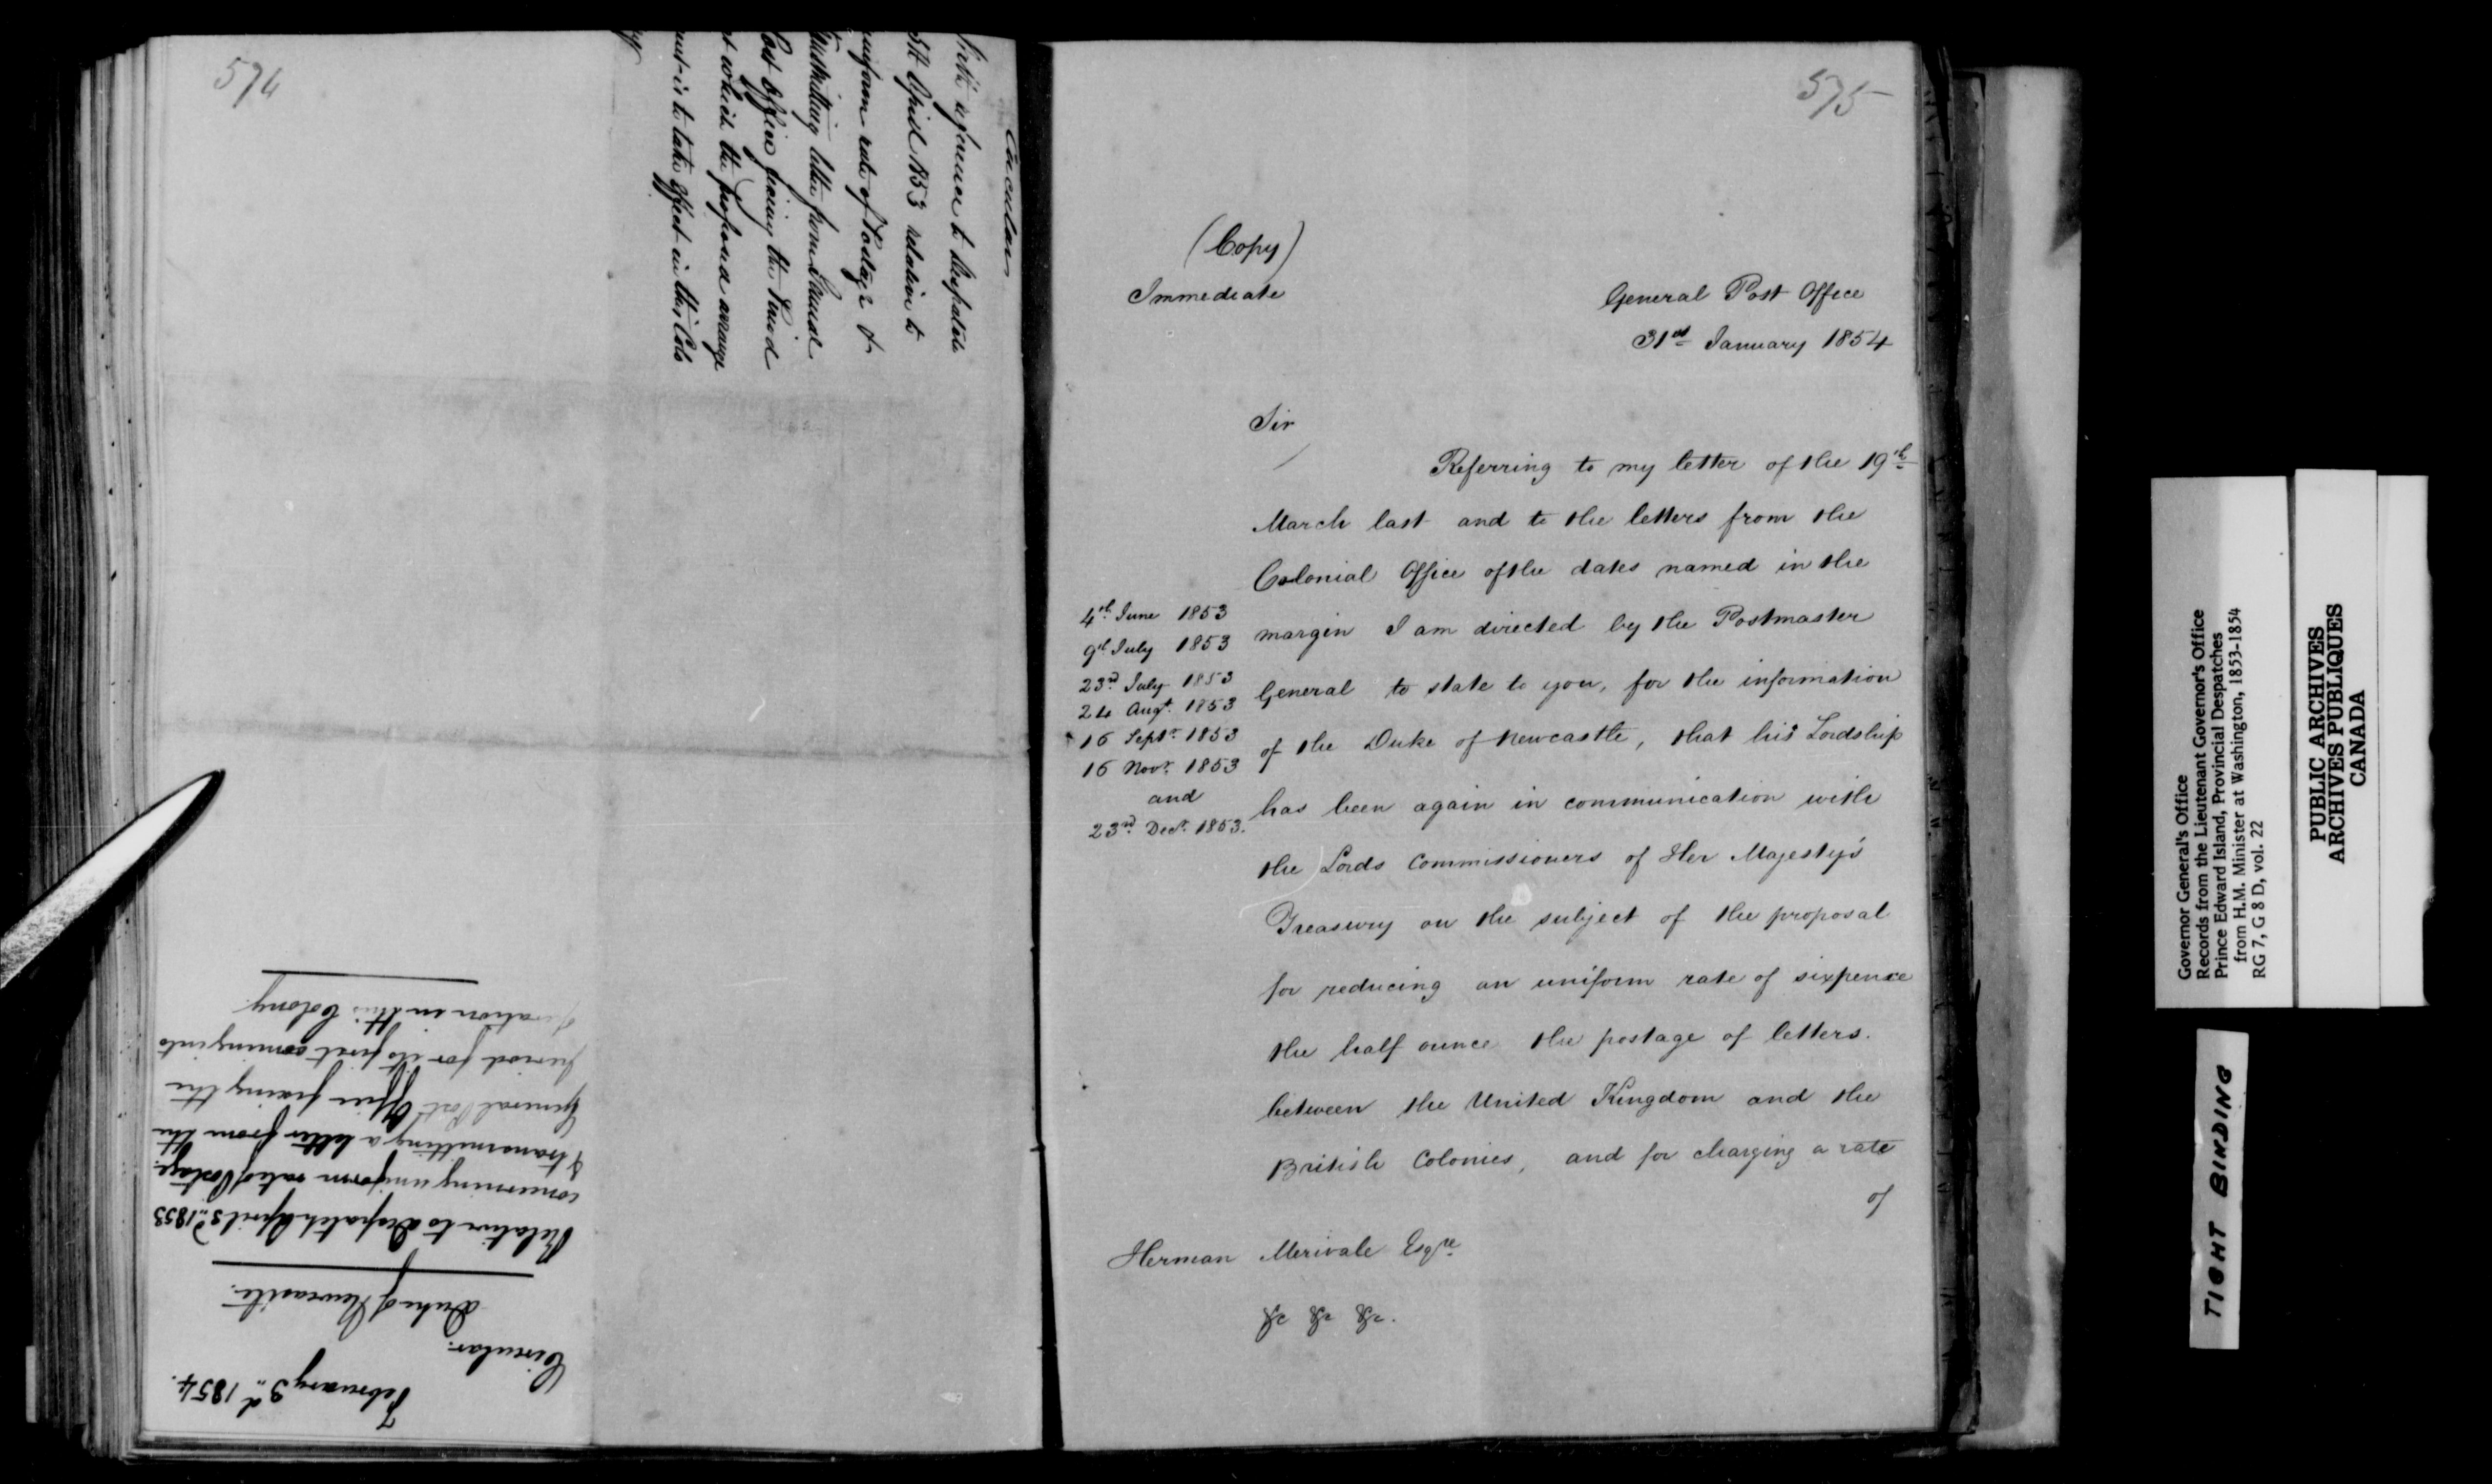 574
Circular
With reference to Despatch
5th April 1853 relative to
uniform rate of Postage &
transmitting letter from General
Post Office fixing the Period
at which the proposed arrange
ment is to take effect in this Colo
February 3d 1854.
Circular.
Duke of Newcastle.
Relative to Despatch April 5.. 1853
concerning uniform rate of Postage.
& transmitting a letter from the
General Post Office fixing the
period for its first coming into
operation in this Colony.
575
(Copy)
Immediate
General Post Office
31st January 1854
Sir
Referring to my letter of the 19th
March last and to the letters from the
Colonial Office of the dates named in the
margin I am directed by the Postmaster
General to state to you, for the information
of the Duke of Newcastle, that his Lordship
has been again in communication with
the Lords Commissioners of Her Majesty's
Treasury on the subject of the proposal
for reducing an uniform rate of sixpence
the half ounce the postage of letters.
between the United Kingdom and the
British Colonies, and for charging a rate
of
4th June 1853
9th July 1853
23rd July 1853
24 Augt. 1853
16 Septr. 1853
16 Novr. 1853
and
23rd Decr. 1853.
Herman Merivale Esqre
&c &c &c.
Governor General's Office
Records from the Lieutenant Governor's Office
Prince Edward Island, Provincial Despatches
from H.M. Minister at Washington, 1853-1854
RG 7, G 8 D, vol. 22
PUBLIC ARCHIVES
ARCHIVES PUBLIQUES
CANADA
TIGHT BINDING